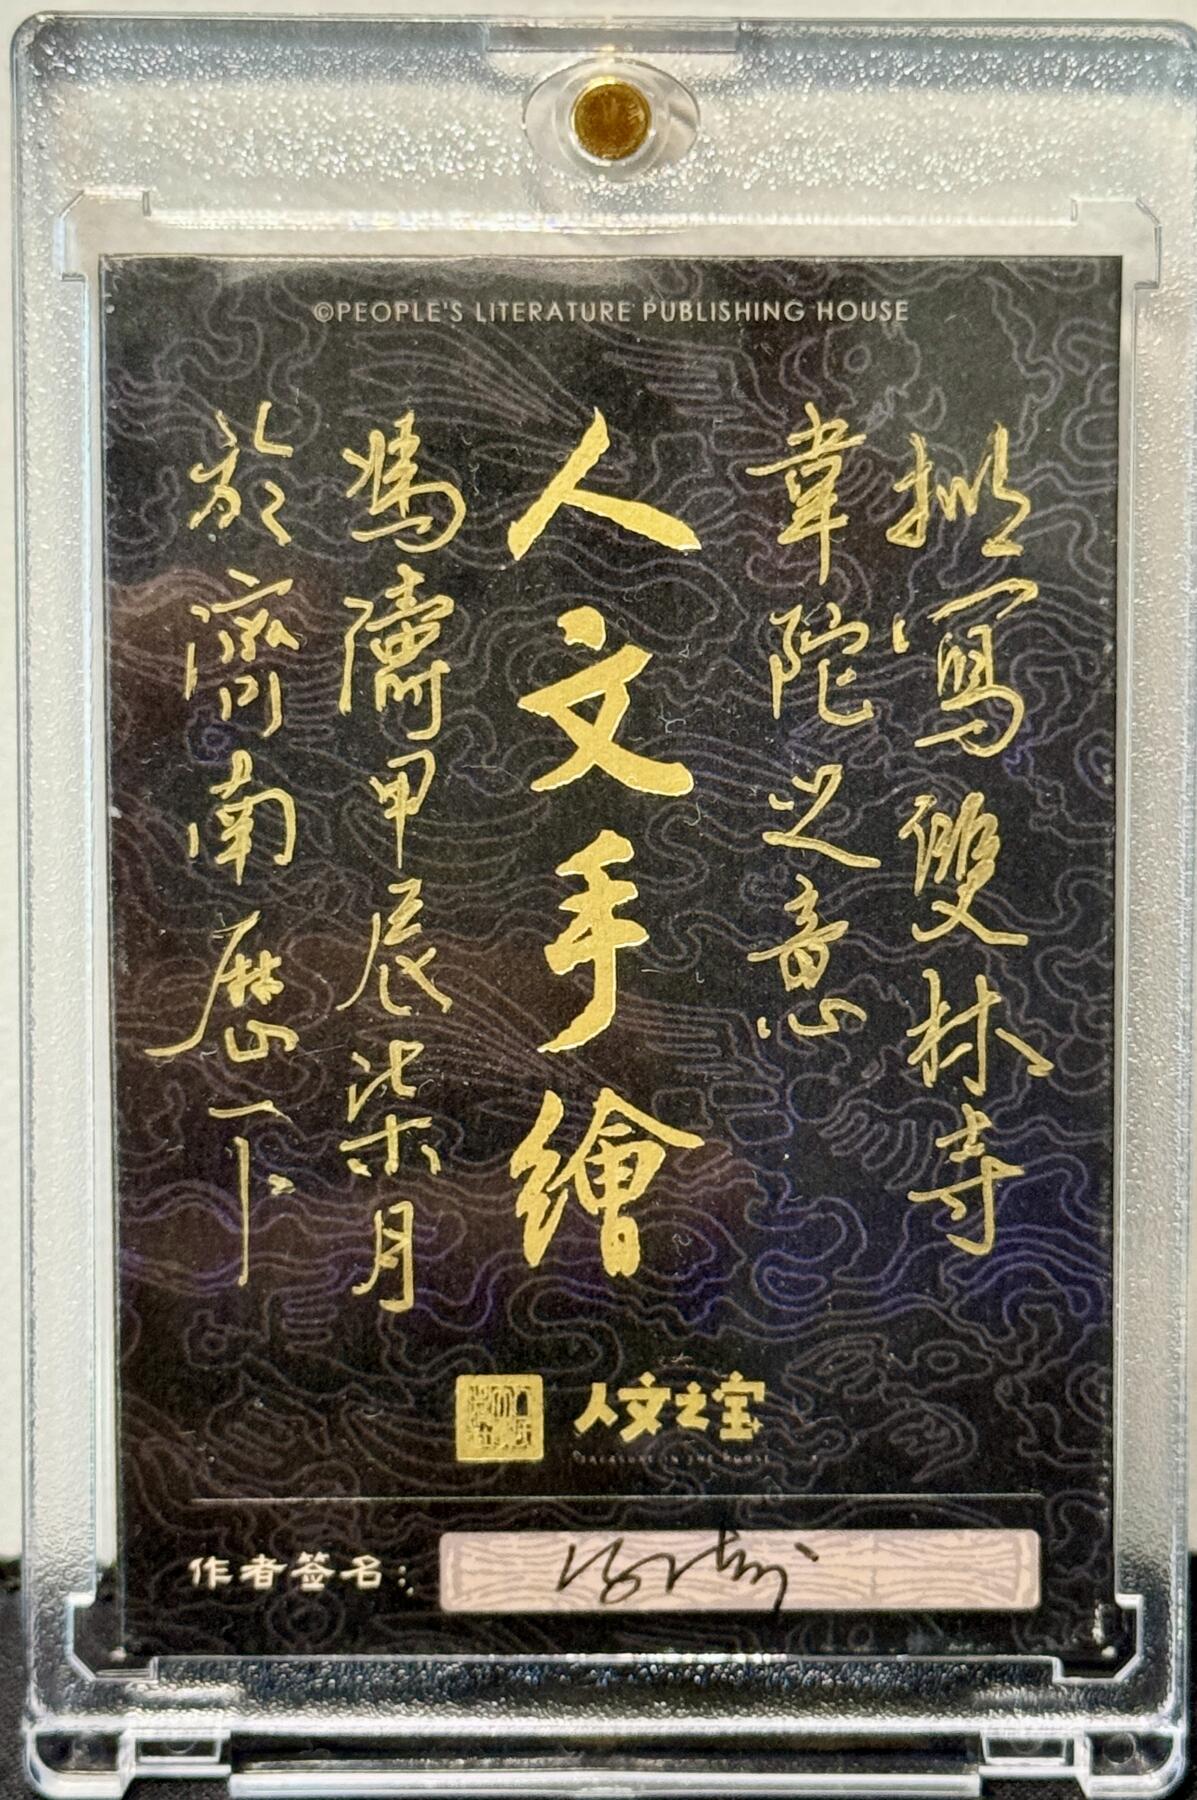 ©PEOPLE'S LITERATURE PUBLISHING HOUSE
拟寫雙林寺
韋陀之意
人文手繪
馮濤甲辰柒月
於濟南歷下
人文之宝
TREASURE IN THE HOUSE
作者签名：